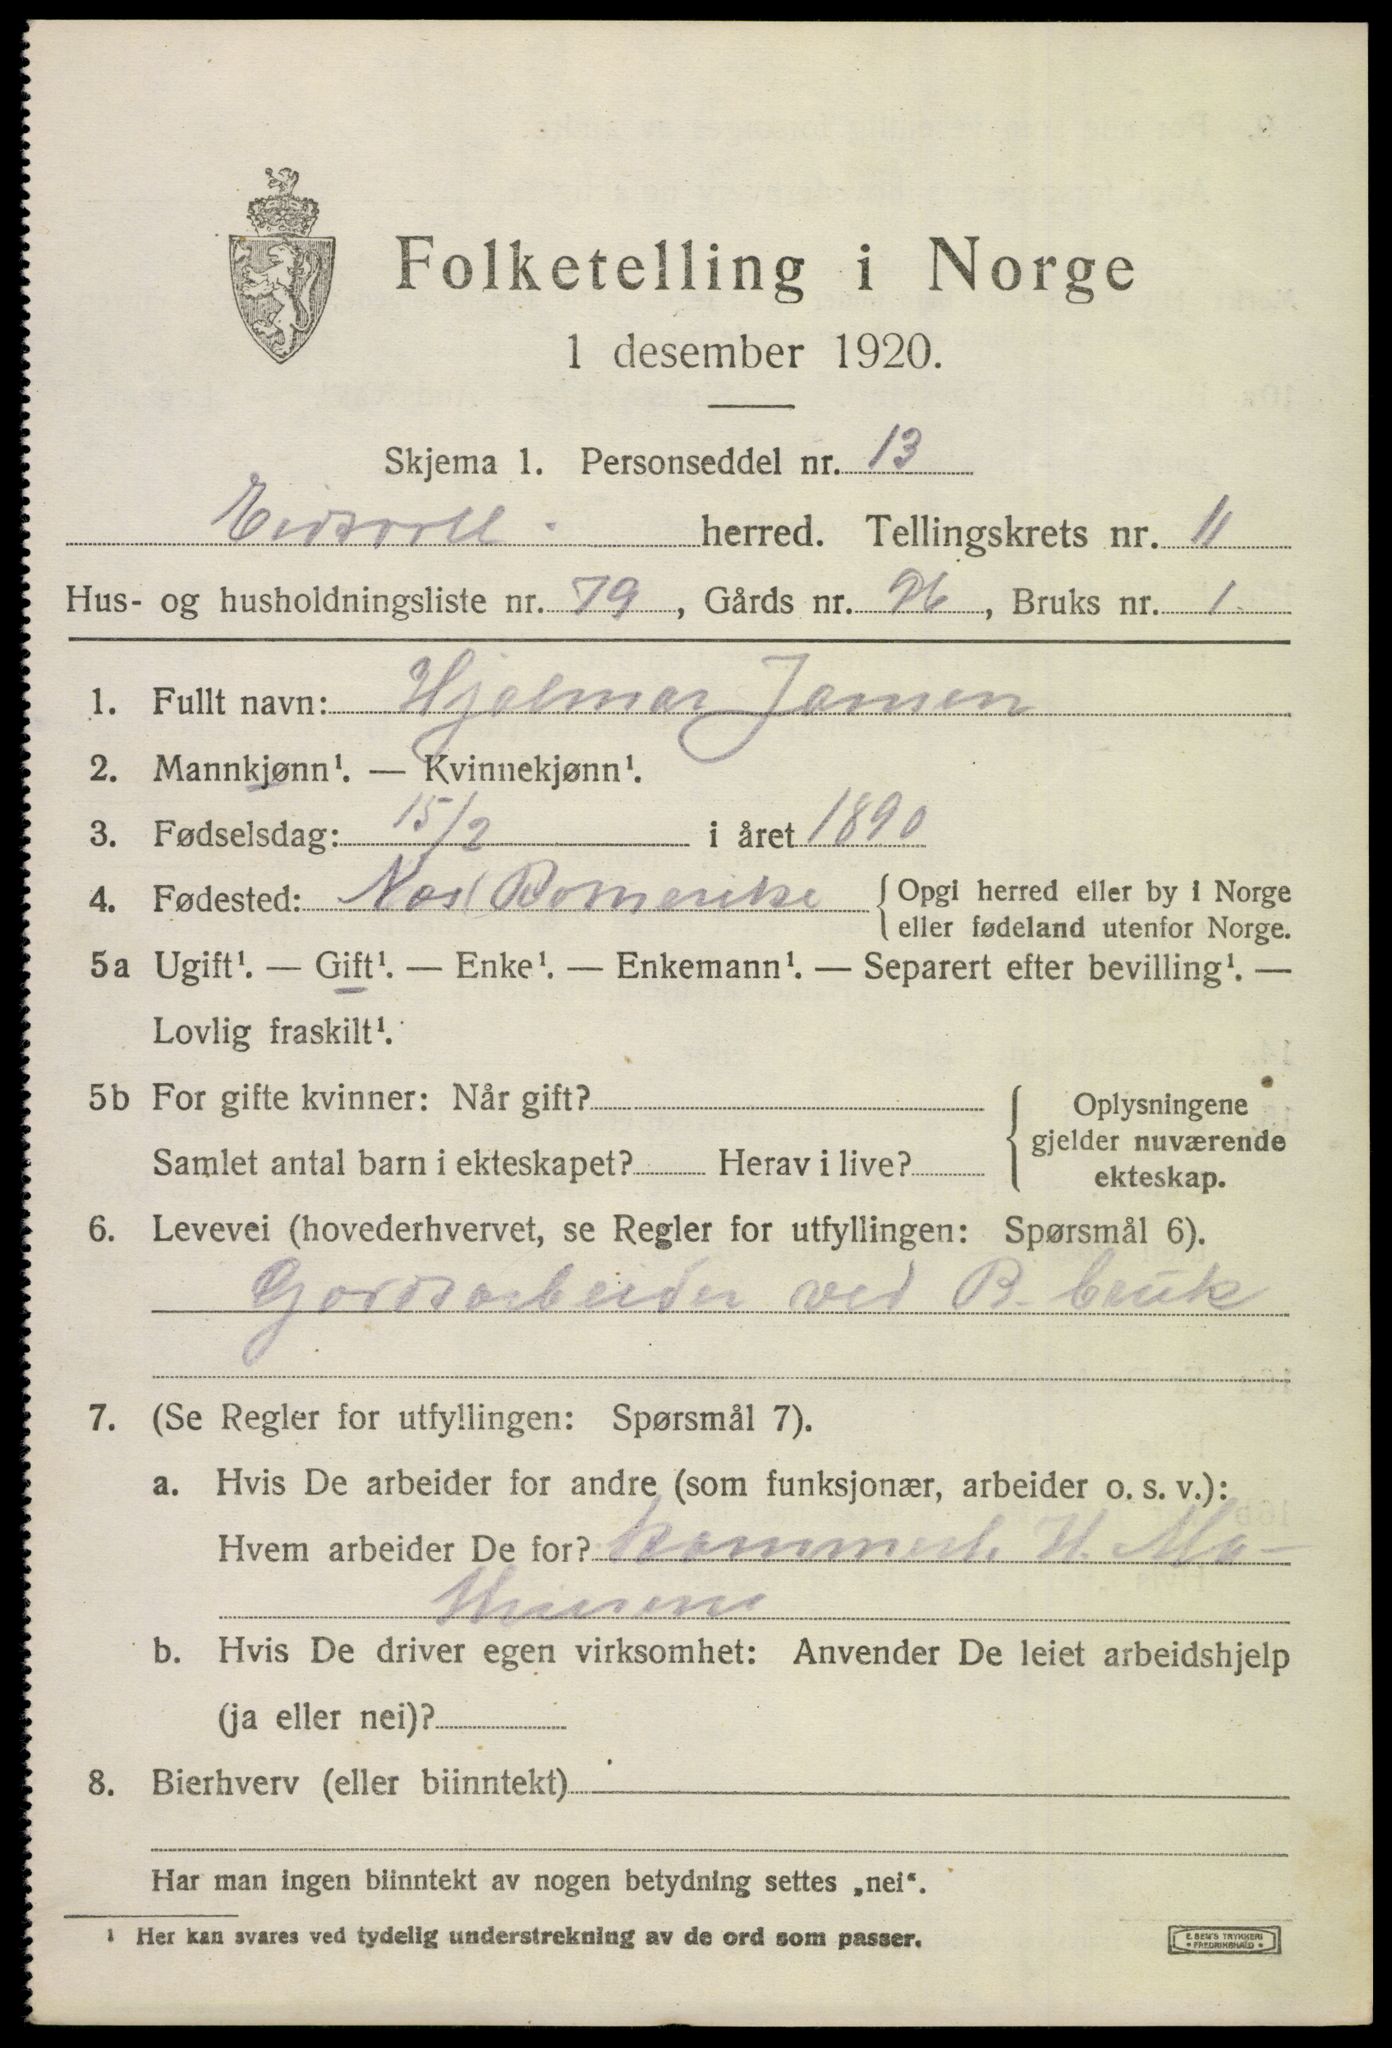 Folketelling i Norge
1 desember 1920.
Skjema 1. Personseddel nr. 13
Eidsvoll herred. Tellingskrets nr. 11
Hus- og husholdningsliste nr. 79, Gårds nr. 96, Bruks nr. 1
1. Fullt navn: Hjalmar Jansen
2. Mannkjønn¹. — Kvinnekjønn¹.
3. Fødselsdag: 15/2 i året 1890
4. Fødested: Nes Romerike { Opgi herred eller by i Norge
eller fødeland utenfor Norge.
5a Ugift¹. — Gift¹. — Enke¹. — Enkemann¹. — Separert efter bevilling¹. —
Lovlig fraskilt¹.
5b For gifte kvinner: Når gift? { Oplysningene
gjelder nuværende
Samlet antal barn i ekteskapet? Herav i live?
ekteskap.
6. Levevei (hovederhvervet, se Regler for utfyllingen: Spørsmål 6).
Gardsarbeider ved B. bruk
7. (Se Regler for utfyllingen: Spørsmål 7).
a. Hvis De arbeider for andre (som funksjonær, arbeider o. s. v.):
Hvem arbeider De for? Kammerh. H. Ma-
thiesens
b. Hvis De driver egen virksomhet: Anvender De leiet arbeidshjelp
(ja eller nei)?
8. Bierhverv (eller biinntekt)
Har man ingen biinntekt av nogen betydning settes „nei“.
¹ Her kan svares ved tydelig understrekning av de ord som passer.
E. SEM'S TRYKKERI
• FREDRIKSHALD •